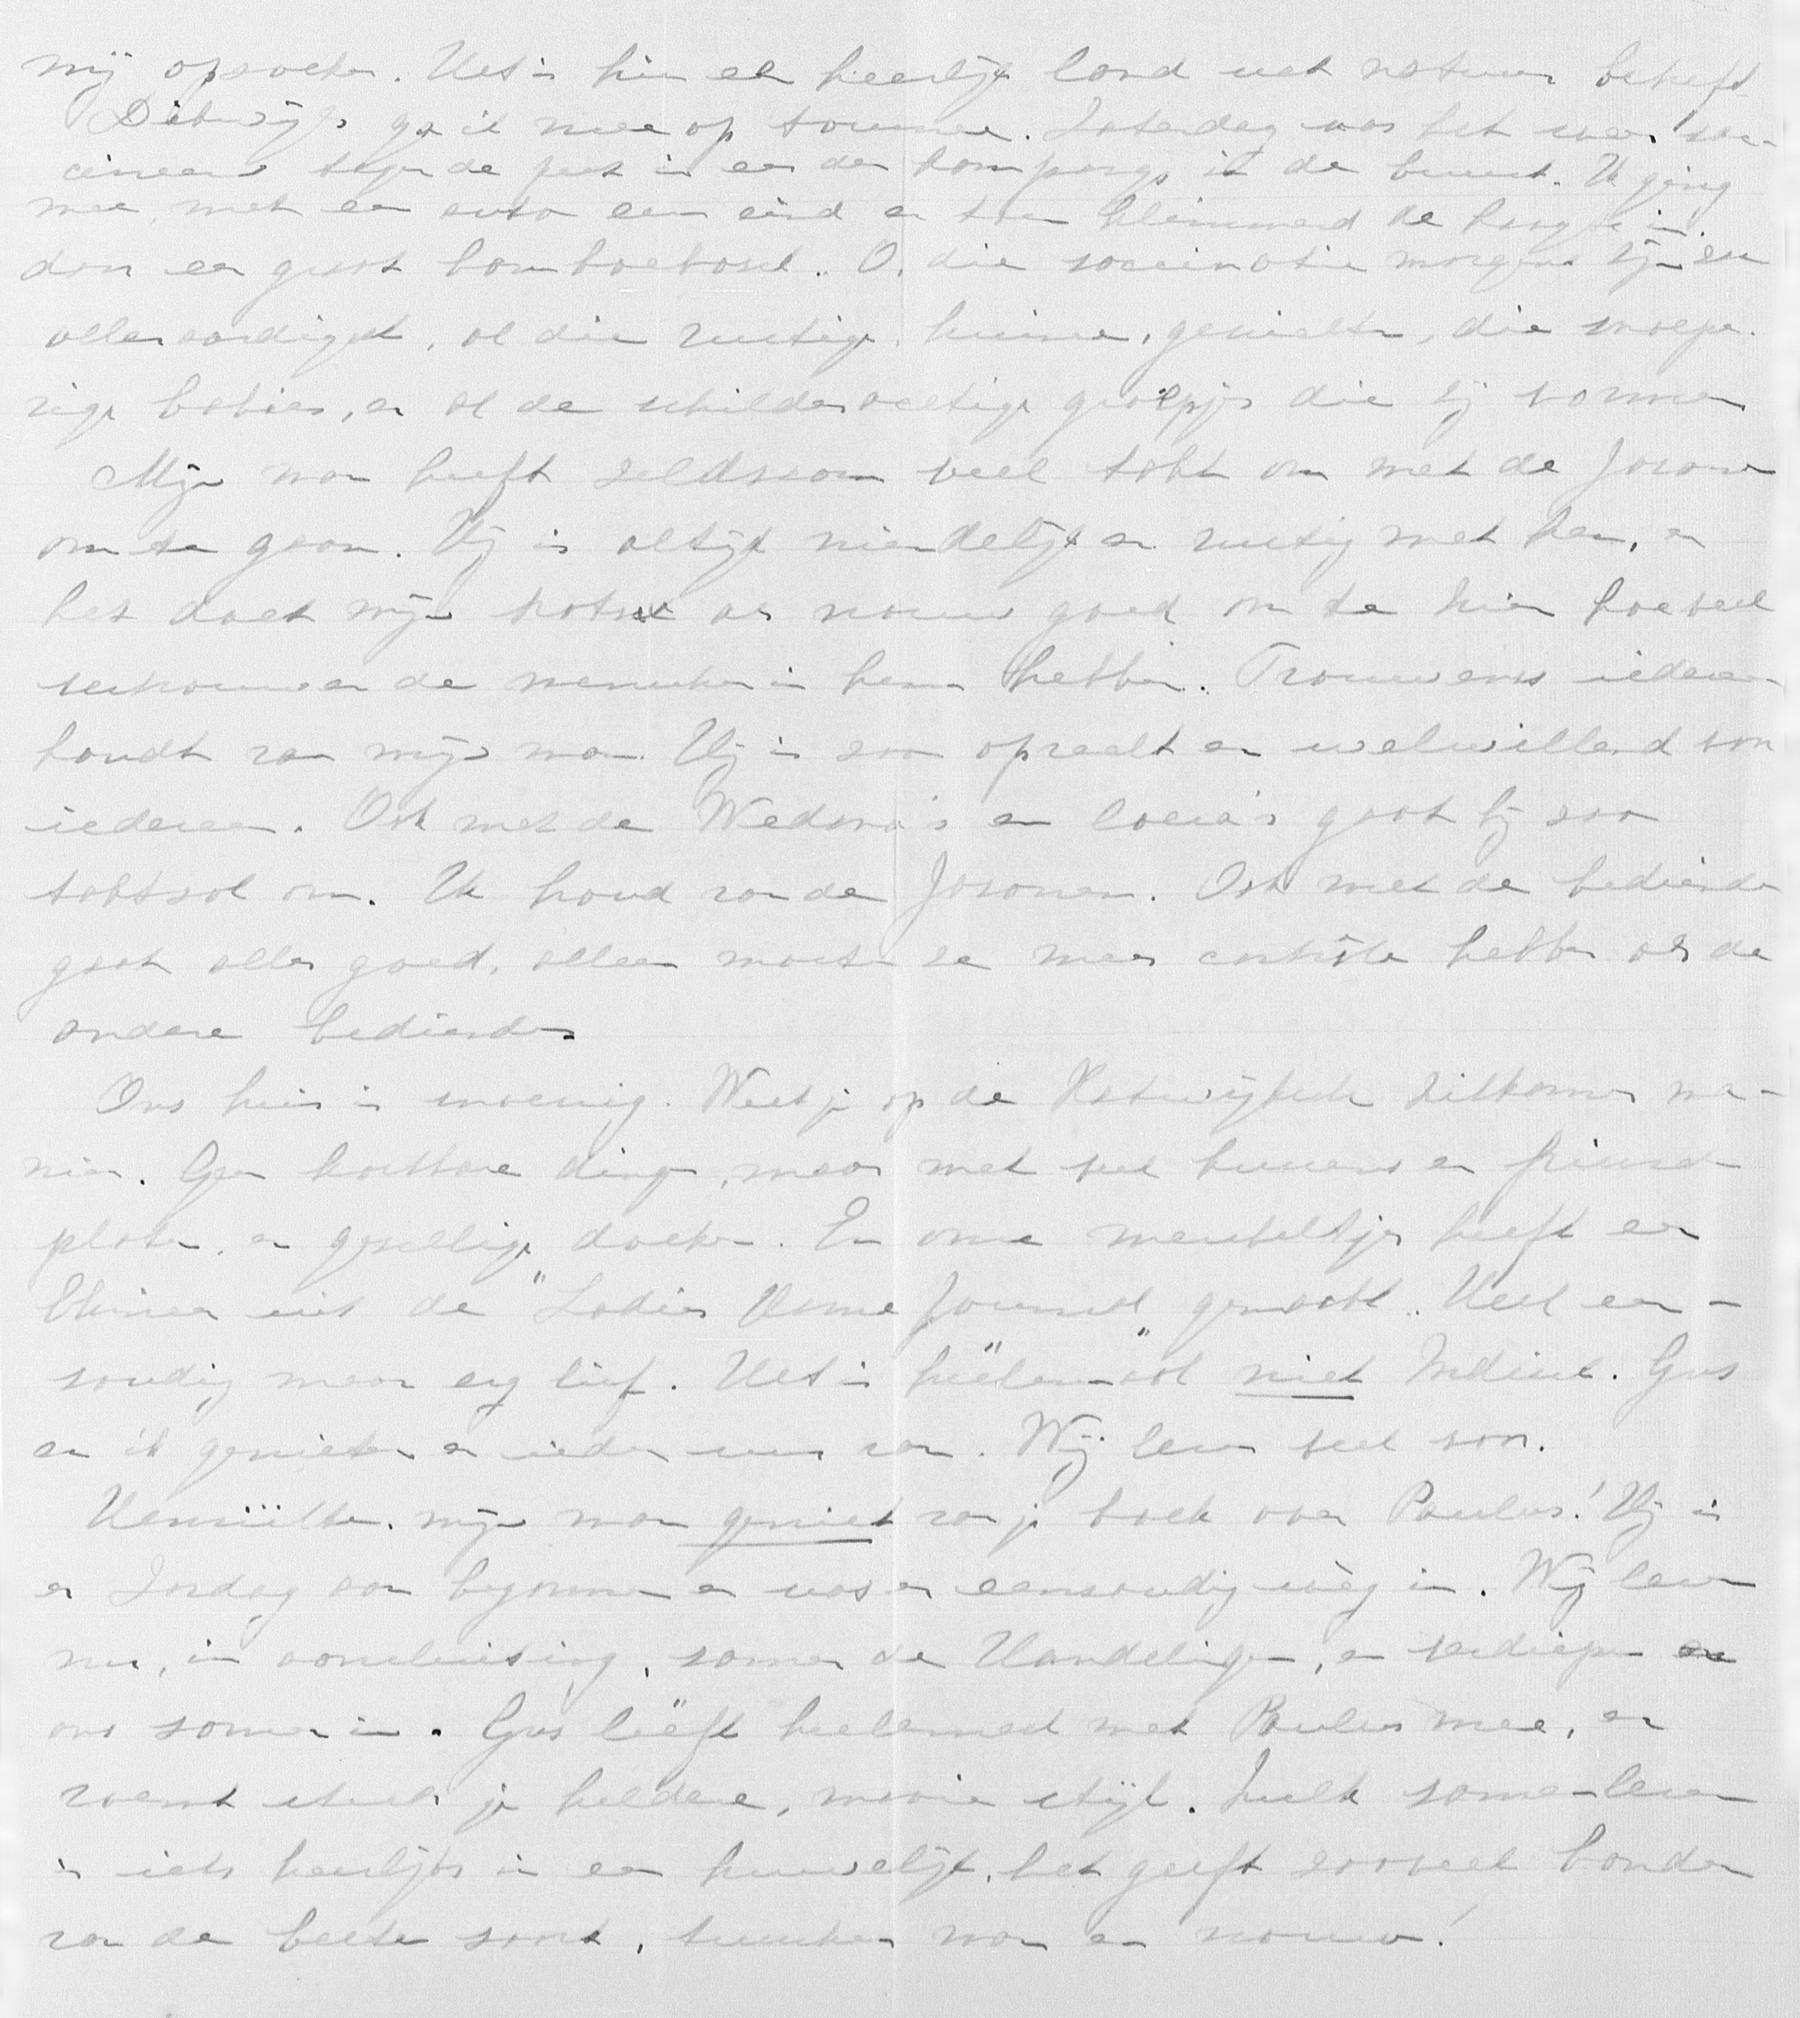 mij opzoeken. Het is hier een heerlijk land wat natuur betreft
Dikwijls ga ik mee op tournee. Zaterdag was het weer vac-
cineeren tegen de pest in een der kampongs in de buurt. Ik ging
mee, met een auto een eind en toen klimmend de hoogte in,
door een groot bamboebosch. O, die vaccinatie morgens zijn zoo
alleraardigst, al die rustige, bruine, gezichten, die snoepe-
rige babies, en al de schilderachtige groepjes die zij vormen
Mijn man heeft zeldzaam veel takt om met de Javanen
om te gaan. Hij is altijd vriendelijk en rustig met hen, en
het doet mijn hart als vrouw goed om te zien hoeveel
vertrouwen de menschen in hem hebben. Trouwens iedereen
houdt van mijn man. Hij is zoo oprecht en welwillend voor
iedereen. Ook met de Wedana's en loera's gaat hij zoo
taktvol om. Ik houd van de Javanen. Ook met de bedienden
gaat alles goed, alleen moeten ze meer contrôle hebben als de
andere bedienden
Ons huis is snoezig. Weet je op de Katwijksche zitkamer ma-
nier. Geen kostbare dingen, maar met veel bloemen en
platen, en gezellige doeken. En onze meubeltjes heeft een
Chinees uit de "Ladies Home Journal" gemaakt. Heel een-
voudig maar erg lief. Het is heelemaal niet Indisch. Gus
en ik genieten er ieder uur van. Wij lezen veel voor.
Henriëtte, mijn man geniet van je boek over Paulus! Hij is
er Zondag aan begonnen en was er eenvoudig wèg in. Wij lezen
nu, in aansluiting, samen de Handelingen, en verdiepen er
ons samen in. Gus leeft heelemaal met Paulus mee, en
roemt steeds je heldere, mooie stijl. Zulk samen lezen
is iets heerlijks in een huwelijk, het geeft zooveel banden
van de beste soort, tusschen man en vrouw!